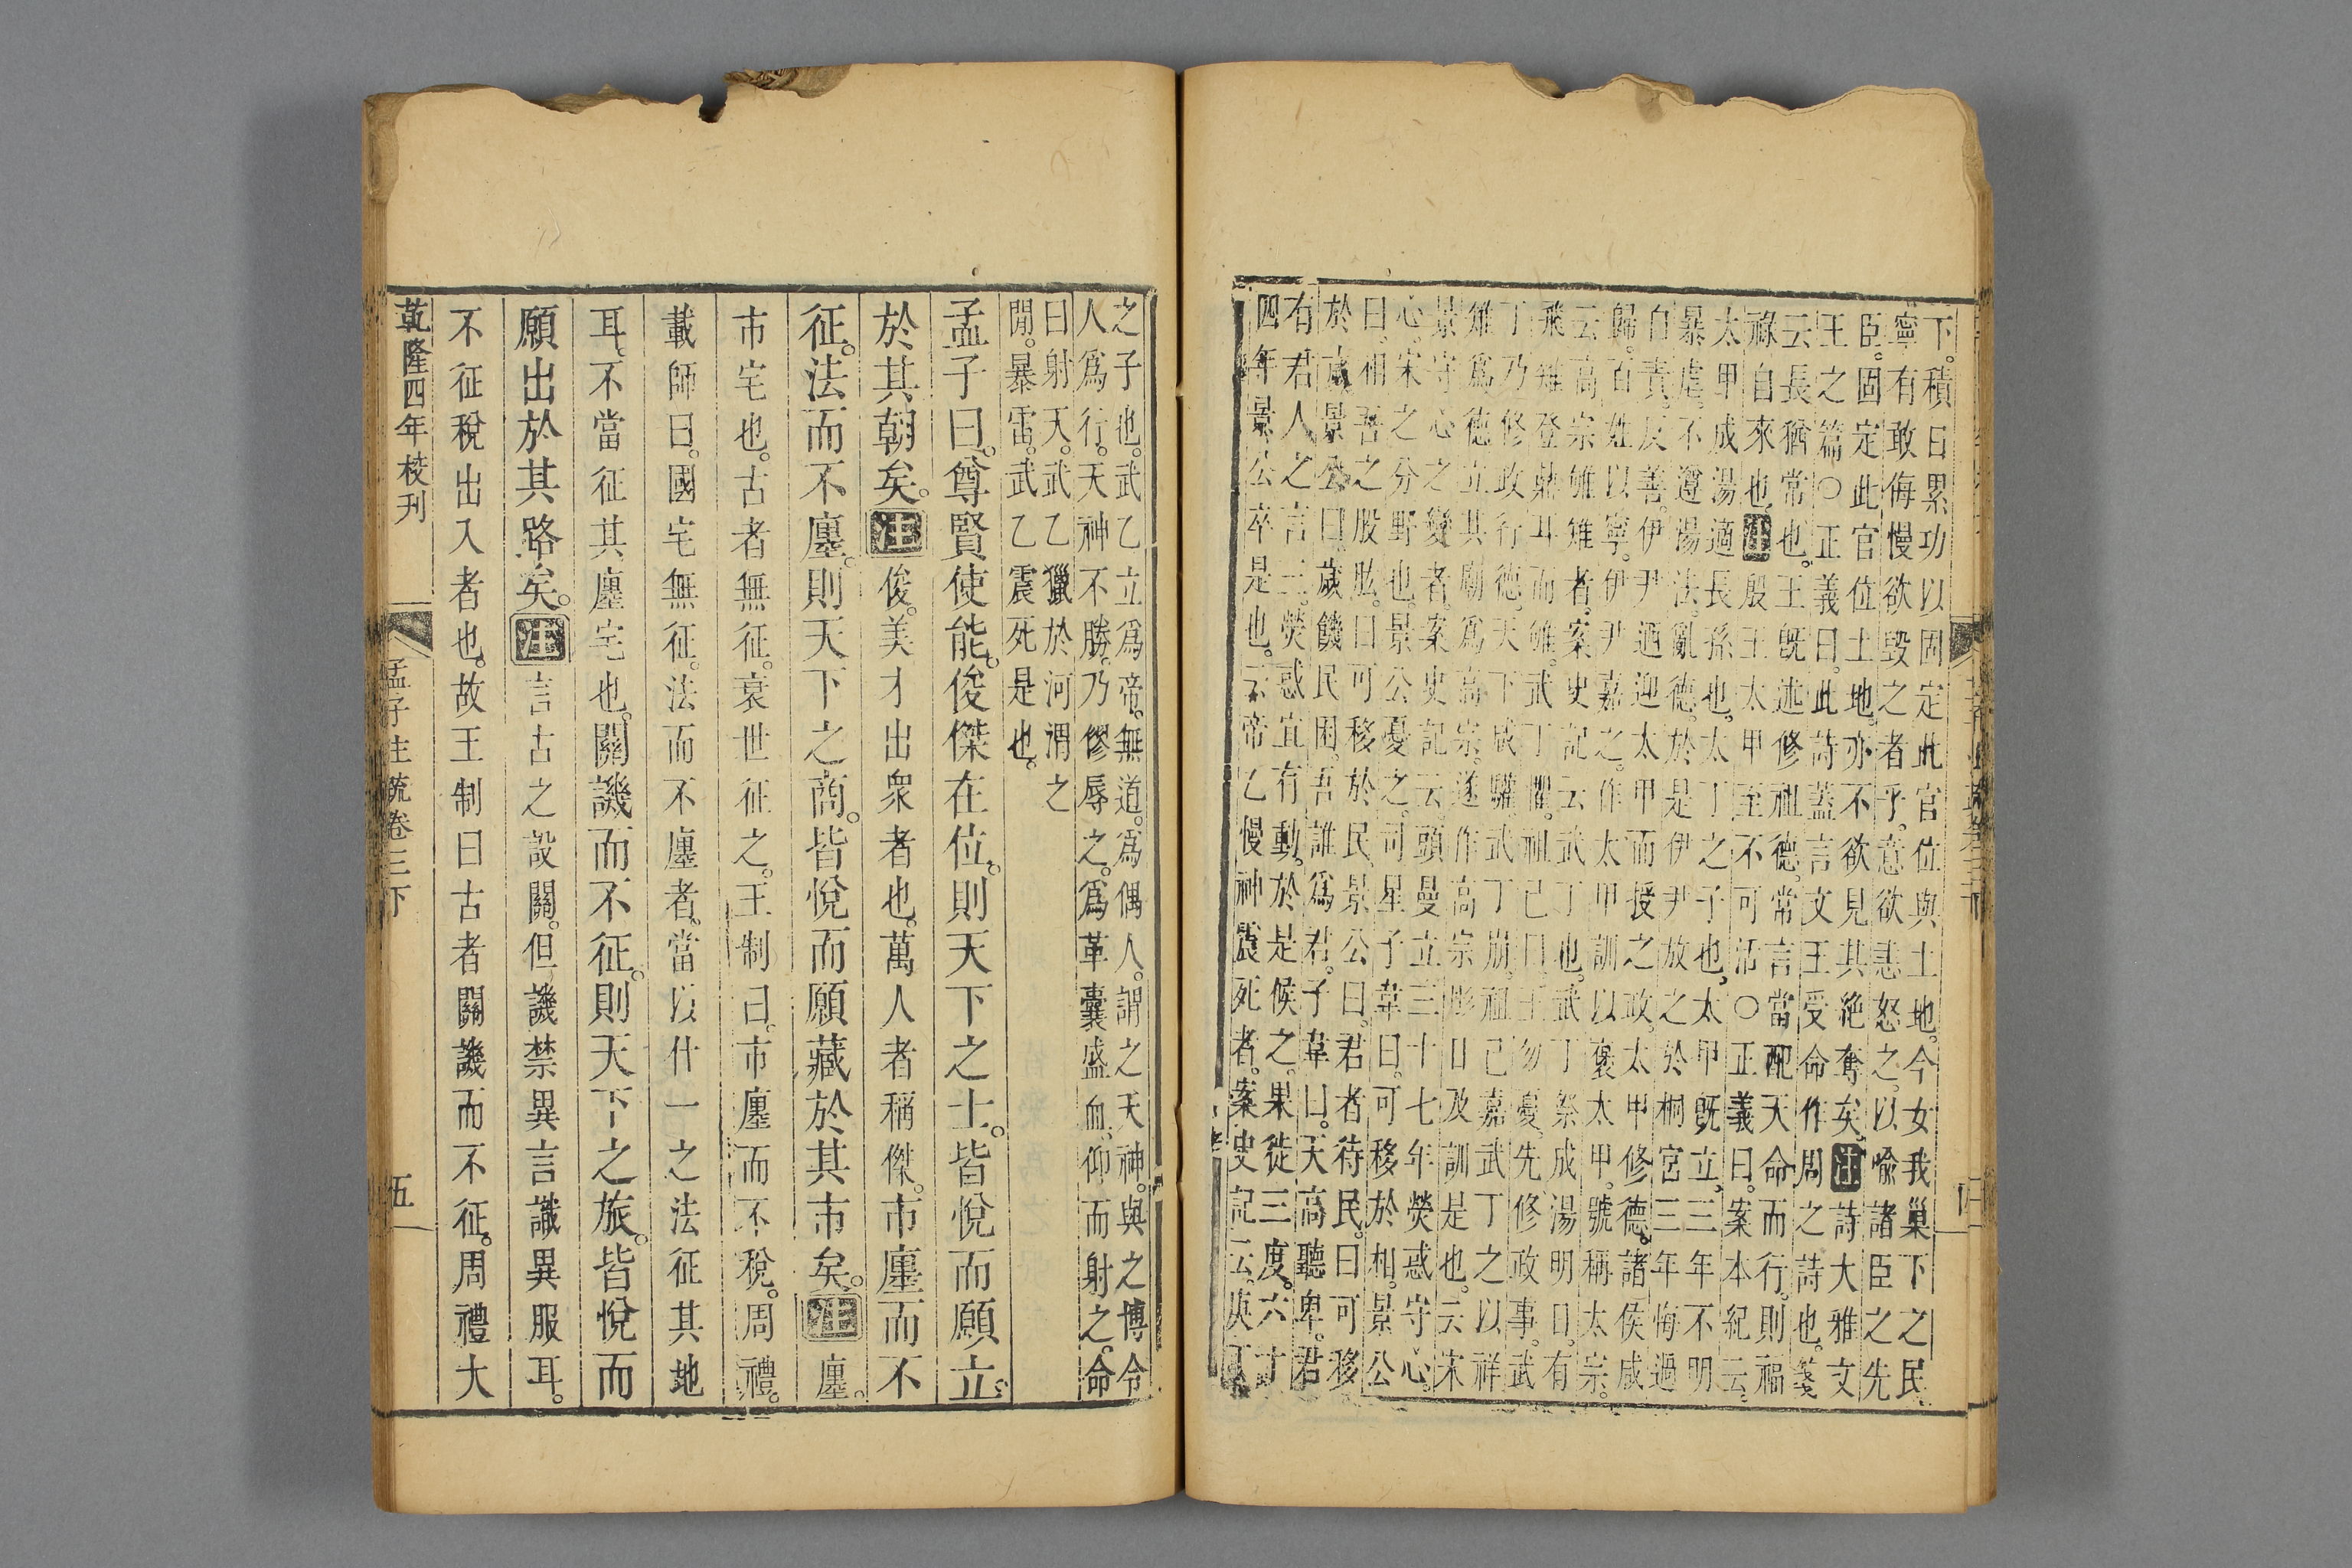 下。積日累功以固定此官位與土地。今女我巢下之民
寧有敢侮慢欲毀之者乎。意欲恚怒之。以喻諸臣之先
臣。固定此官位土地。亦不欲見其絶奪矣。注詩大雅文
王之篇○正義曰。此詩蓋言文王受命作周之詩也。箋
云長猶常也。王既述修祖德。常言當配天命而行。則福
祿自來也。注殷王太甲至不可活○正義曰。案本紀云。
太甲成湯適長孫也。太丁之子也。太甲既立。三年不明
暴虐。不遵湯法。亂德。於是伊尹放之於桐宮三年悔過
自責。反善。伊尹迺迎太甲而授之政。太甲修德。諸侯咸
歸。百姓以寧。伊尹嘉之。作太甲訓以襃太甲。號稱太宗。
云高宗雊雉者。案史記云武丁也。武丁祭成湯明日。有
飛雉登鼎耳而雊。武丁懼。祖己曰。王勿憂。先修政事。武
丁乃修政行德。天下咸驩武丁崩。祖己嘉武丁之以祥
雉爲德立其廟爲高宗。遂作高宗肜日及訓是也。云宋
景守心之變者。案史記云。頭曼立三十七年熒惑守心。
心。宋之分野也。景公憂之。司星子韋曰。可移於相。景公
曰。相吾之股肱。曰可移於民。景公曰。君者待民。曰可移
於歲。景公曰。歲饑民困。吾誰爲君。子韋曰。天高聽卑。君
有君人之言三。熒惑宜有動。於是候之。果徙三度。六十
四年景公卒是也。云帝乙慢神震死者。案史記云。庚丁
之子也。武乙立爲帝。無道。爲偶人。謂之天神。與之博令
人爲行。天神不勝。乃僇辱之。爲革囊盛血。仰而射之。命
曰射天。武乙獵於河渭之
閒。暴雷。武乙震死是也。
孟子曰。尊賢使能。俊傑在位。則天下之士。皆悅而願立
於其朝矣。注俊。美才出衆者也。萬人者稱傑。市廛而不
征。法而不廛。則天下之商。皆悅而願藏於其市矣。注廛。
市宅也。古者無征。衰世征之。王制曰。市廛而不稅。周禮。
載師曰。國宅無征。法而不廛者。當以什一之法征其地
耳。不當征其廛宅也。關譏而不征。則天下之旅。皆悅而
願出於其路矣。注言古之設關。但譏禁異言識異服耳。
不征稅出入者也。故王制曰古者關譏而不征。周禮大
乾隆四年校刊
孟子注疏卷三下
五